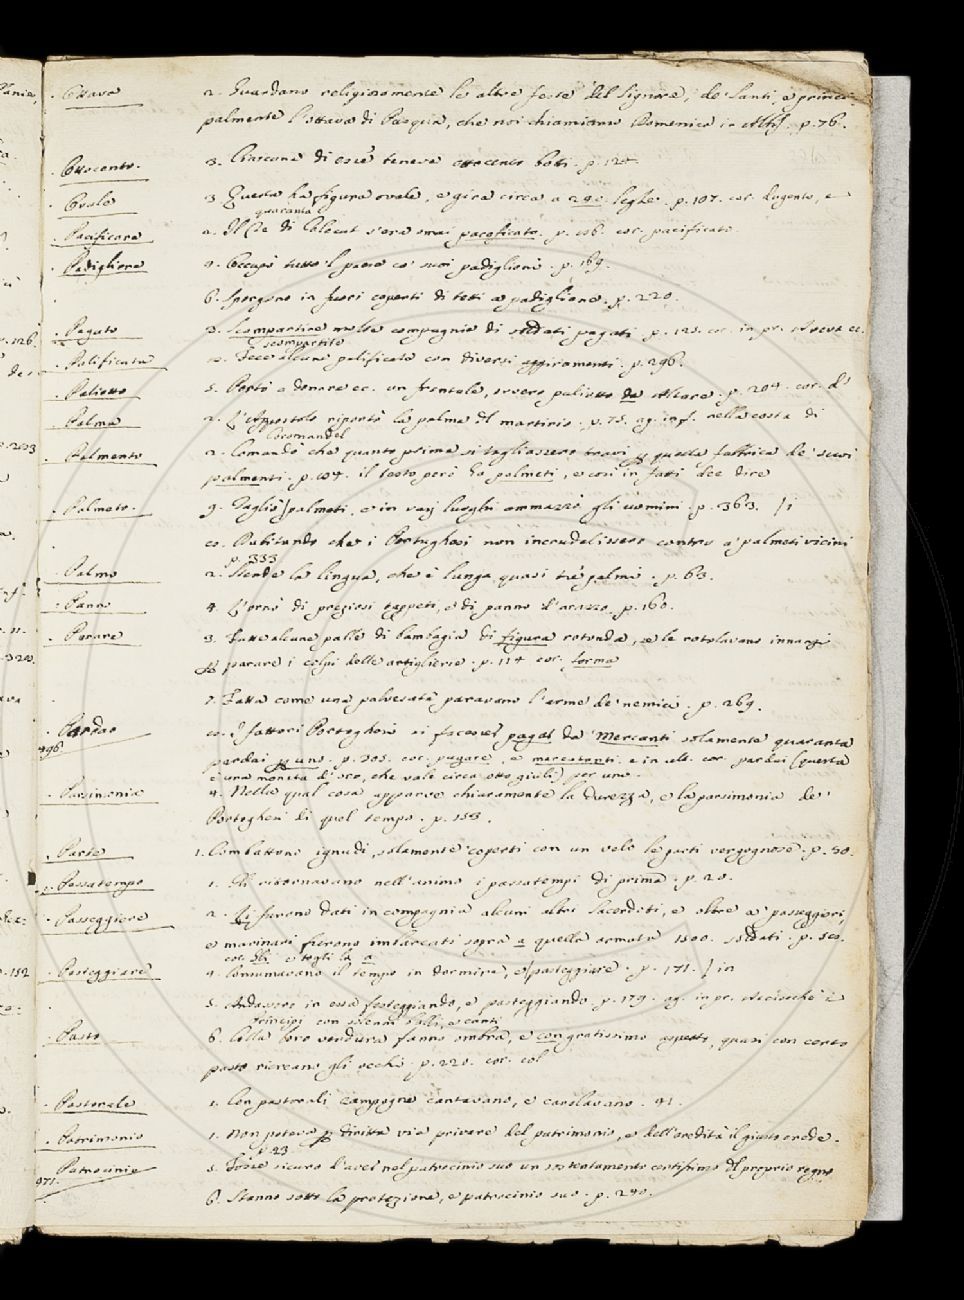 Ottava 2. Guardano religiosamente le altre feste del Signore, de' Santi, e princi-
palmente l'ottava di Pasqua, che noi chiamiamo Domenica in Albis. p. 76.
Ottocento. 3. Ciascuna di esse tenere ottocento botti. p. 124
Ovale 3. Questa ha figura ovale, e gira circa a 240. leghe. p. 107. cor. dugento, e
quaranta
Pacificare 2. Il Re di Calecut s'era omai pacificato. p. cor. pacificato.
Padiglione 4. Occupò tutto 'l paese co' suoi padiglioni. p. 169.
6. Sporgono in fuori coperti di tetti a padiglione. p. 220.
Pagato 3. Scompartire molte compagnie di soldati pagati. p. 125. cor. in pr.
scompartite
Palificata 10. Fece alcune palificate con diversi aggiramenti. p. 296.
Paliotto 5. Portò a donare ec. un frontale, ovvero paliotto da Altare. p. 204. cor. d'
Palma 2. L'Appostolo riportò la palma del martirio. p. 75. ag. inf. nella costa di
Coromandel
Palmento 3. Comandò che quanto prima si tagliassero travi per quella fabbrica de' suoi
palmenti. p. 104. il testo però ha palmeti, e così in fatti dee dire
Palmeto. 9. Tagliò palmeti, e in varj luoghi ammazzò gli uomini. p. 363. / i
10. Dubitando che i Portughesi non incrudelissero contro a' palmeti vicini
p. 333
Palmo 2. Stende la lingua, che è lunga quasi tre palmi. p. 63.
Panno 4. L'ornò di preziosi tappeti, e di panno d'arazzo. p. 160.
Parare 3. Fatte alcune palle di bambagia di figura rotonda, e le rotolavano innanzi
per parare i colpi delle artiglierie. p. 114 cor. forma
7. Fatta come una palvesata paravano l'arme de' nemici. p. 269.
Pardao 10. I fattori Portoghesi si faceser pagar da Mercanti solamente quaranta
496
pardai per uno. p. 305. cor. pagare, e mercatanti. e in alt. cor. pardai (questa
è una moneta d'oro, che vale circa otto giuli) per uno.
Parsimonia 4. Nella qual cosa apparve chiaramente la durezza, e la parsimonia de'
Portoghesi di quel tempo. p. 153.
Parte 1. Combattono ignudi, solamente coperti con un velo le parti vergognose. p. 30.
Passatempo 1. Gli ritornavano nell'animo i passatempi di prima. p. 20.
Passeggiere 2. Li furono dati in compagnia alcuni altri Sacerdoti, e oltre a' passeggieri,
e marinari furono imbarcati sopra a quella armata 1500. soldati. p.
cor. Gli e togli la a
Pasteggiare 4. Consumavano il tempo in dormire, e pasteggiare. p. 171. / in
5. Andavano in essa festeggiando, e pasteggiando. p. 179. ag. in pr. Acciocchè i
Principi con solenni balli, e canti
Pasto 6. Colla loro verdura fanno ombra, e con gratissimo aspetto, quasi con certo
pasto ricreano gli occhi. p. 220. cor. col
Pastorale 1. Con pastorali zampogne cantavano, e carolavano. 41.
Patrimonio 1. Non poteva per diritta via privare del patrimonio, e dell'eredità il giusto erede.
p. 23
Patrocinio 5. Fosse sicuro d'aver nel patrocinio suo un sostentamento certissimo del proprio regno
971.
6. Stanno sotto la protezione, e patrocinio suo. p. 240.